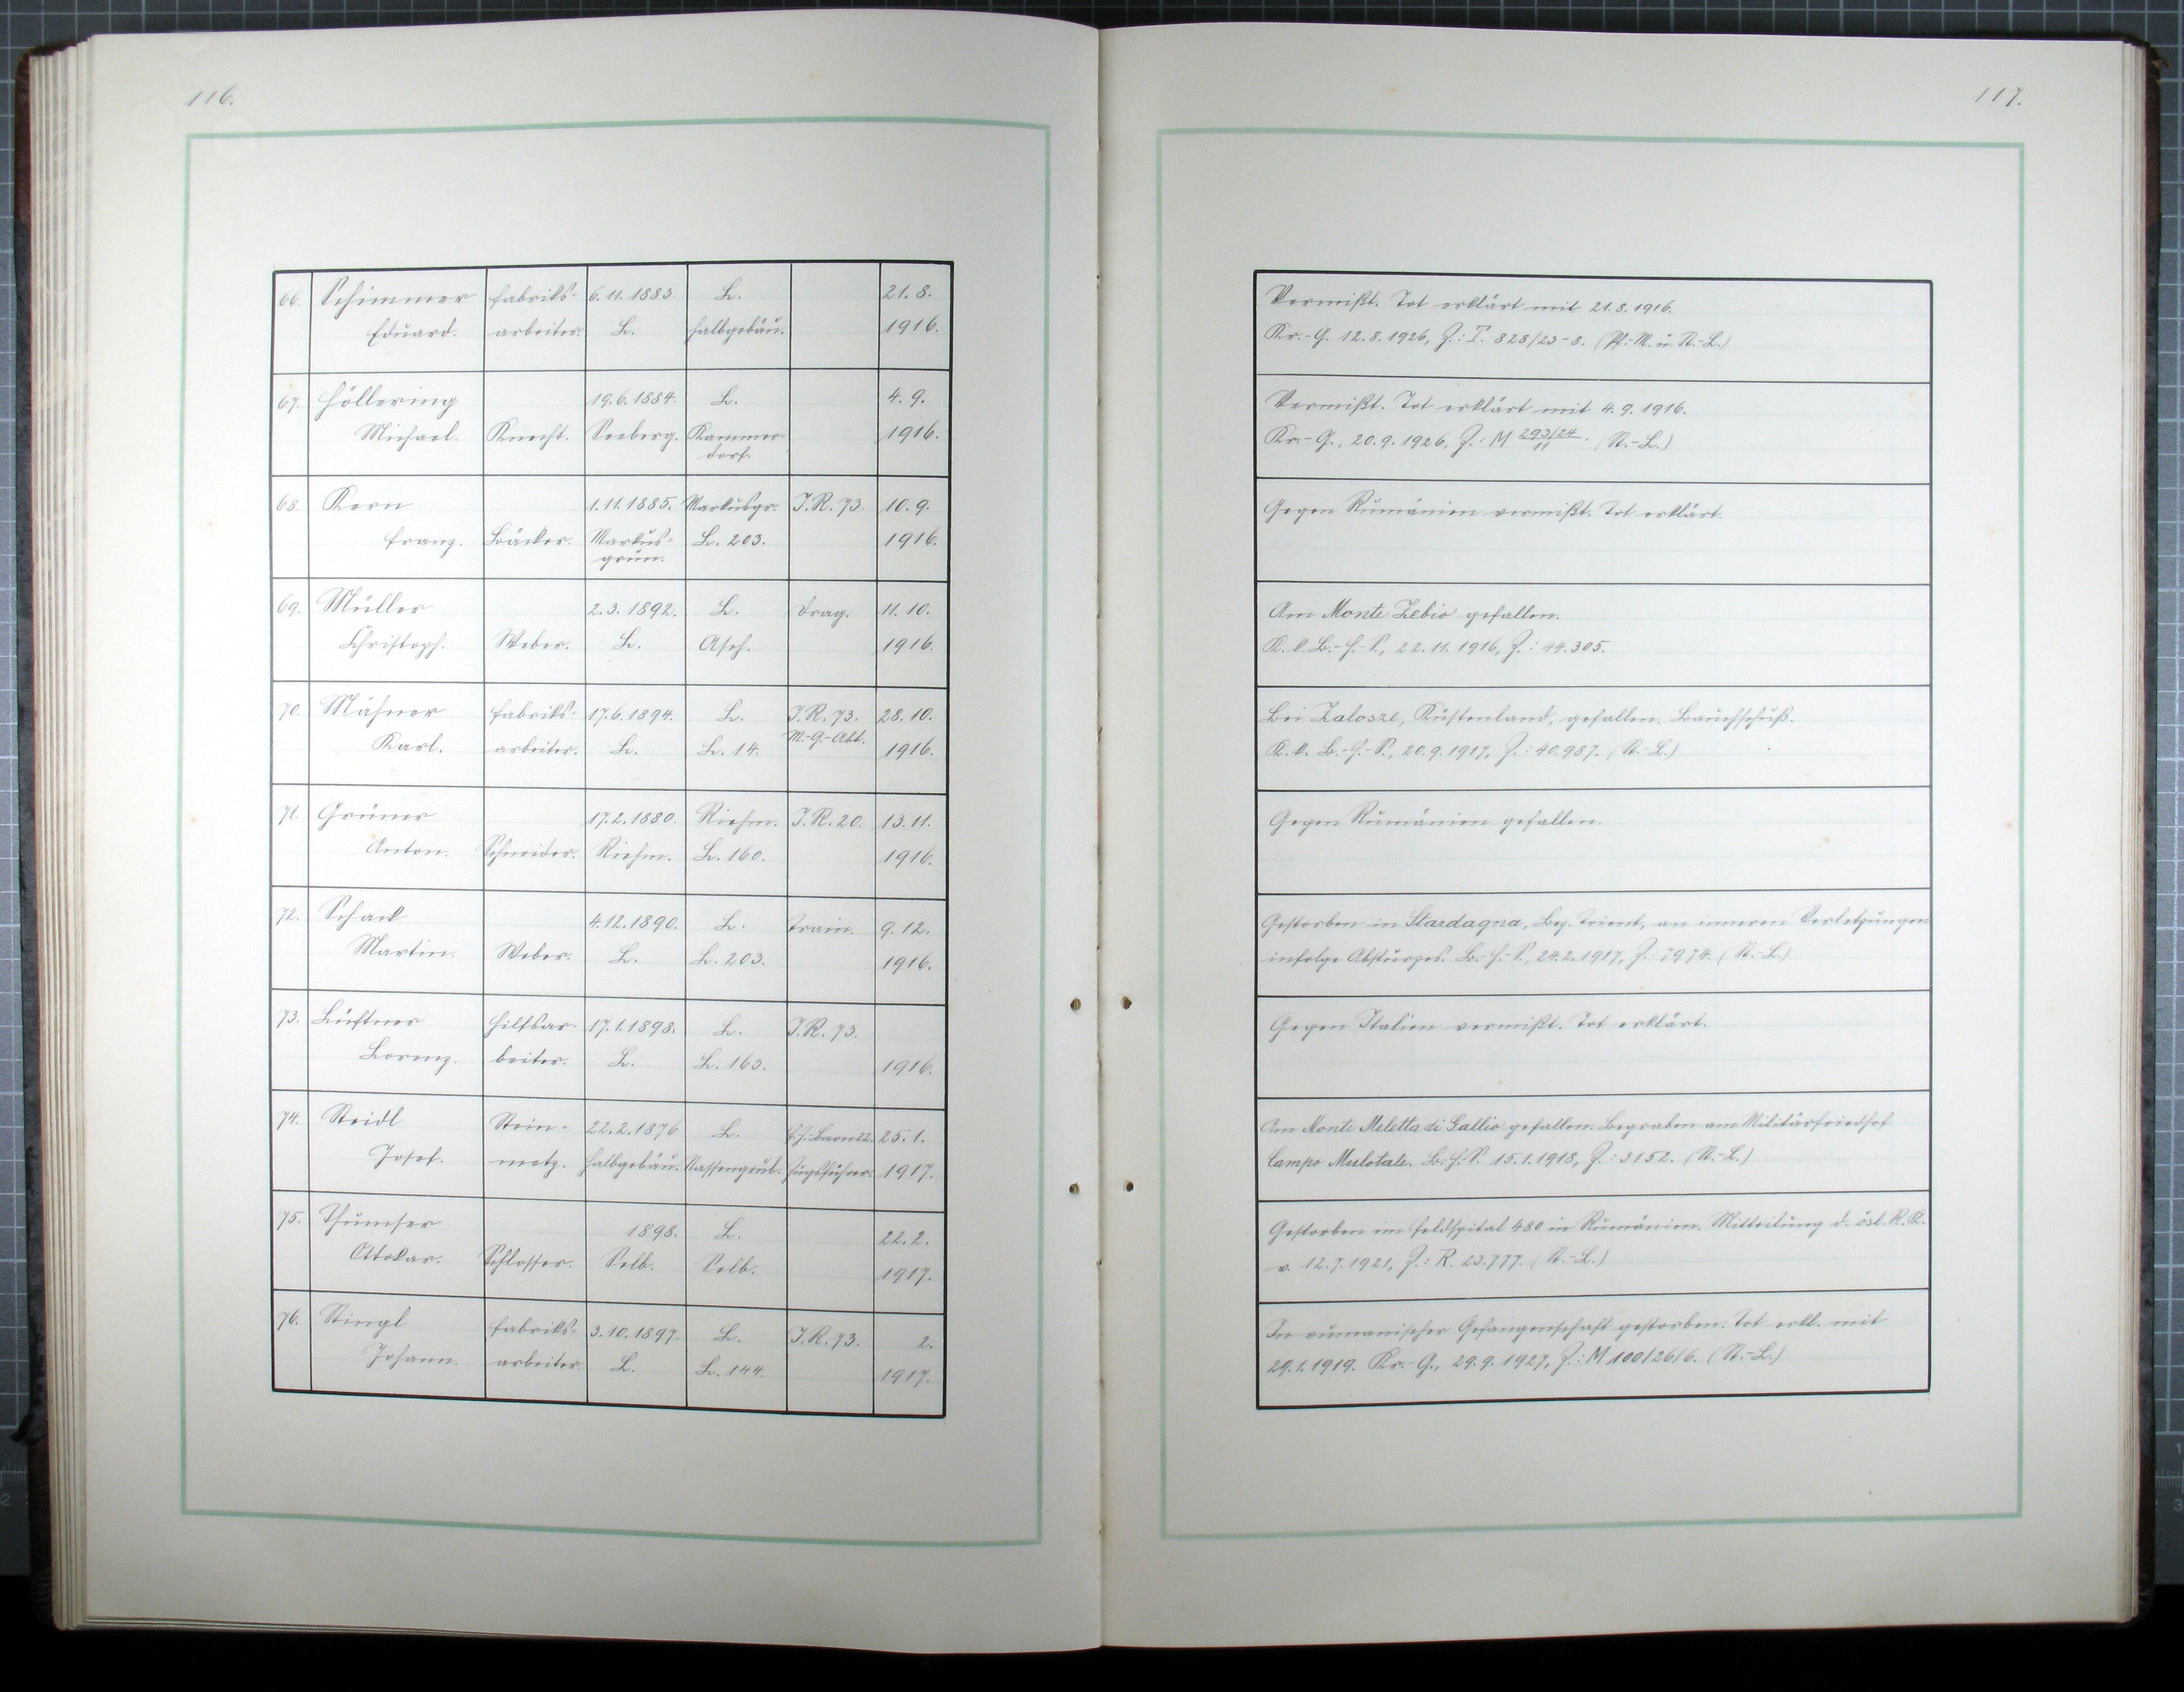 116.
66. Schimmer Fabriks- 6.11.1883. L. 21.8.
Eduard. arbeiter. L. Halbgebäu. 1916.
67. Höllering 19.6.1884. L. 4.9.
Michael. Knecht. Seeberg. Kammer- 1916.
dorf.
68. Kern 1.11.1885. Markusgr. I.R. 73. 10.9.
Franz. Bäcker. Markus- L. 203. 1916.
grün.
69. Müller 2.3.1892. L. Drag. 11.10.
Christoph. Weber. L. Asch. 1916.
70. Mähner Fabriks- 17.6.1894. L. I.R. 73. 28.10.
Karl. arbeiter. L. L. 14. M.-G.-Abt. 1916.
71. Grüner 17.2.1880. Riehm. I.R. 20. 13.11.
Anton. Schneider. Riehm. L. 160. 1916.
72. Schack 4.12.1890. L. Train. 9.12.
Martin. Weber. L. L. 203. 1916.
73. Hilfsar- 17.1.1898. L. I.R. 73.
Lorenz. beiter. L. L. 163. 1916.
74. Steidl Stein- 22.2.1876 L. 25.1.
Josef. metz. Halbgebäu. Nassengrub. Zugsführer. 1917.
75. Thumser 1898. L. 22.2.
Ottokar. Schlosser. Selb. Selb. 1917.
76. Stingl Fabriks- 3.10.1897. L. I.R. 73. 2.
Johann. arbeiter. L. L. 144. 1917.
117.
Vermißt. Tot erklärt mit 21.8.1916.
Kr.-G. 12.8.1926, Z.: T. 828/23-8. (Pf.-M. u. St.-L.)
Vermißt. Tot erklärt mit 4.9.1916.
Kr.-G., 20.9.1926, Z.: M 293/24/11. (St.-L.)
Gegen Rumänien vermißt. Tot erklärt.
Am Monte Zebio gefallen.
K.k. B.-H.-P., 22.11.1916, Z.: 44.305.
Bei Zalosze, Küstenland, gefallen. Bauchschuß.
K.k. B.-H.-P., 20.9.1917, Z.: 40.987. (St.-L.)
Gegen Rumänien gefallen.
Gestorben in Sardagna, Bez. Trient, an inneren Verletzungen
infolge Absturzes. B.-H.-P., 24.2.1917, Z.: 7974. (St.-L.)
Gegen Italien vermißt. Tot erklärt.
Am Monte Meletta di Gallio gefallen. Begraben am Militärfriedhof
Campo Mulotale. B.-H.-P. 15.1.1918, Z.: 3152. (St.-L.)
Gestorben im Feldspital 480 in Rumänien. Mitteilung d. öst. R.K.
v. 12.7.1921, Z.: R. 23.777. (St.-L.)
In rumänischer Gefangenschaft gestorben. Tot erkl. mit
29.1.1919. Kr.-G., 29.9.1927, Z.: M 100/26/6. (St.-L.)